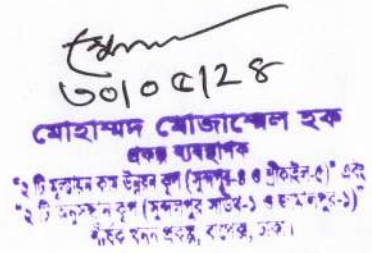 ৩০।০৫।২৪
মোহাম্মদ মোজাম্মেল হক
প্রকল্প ব্যবস্থাপক
"২ টি মূল্যায়ন কাম উন্নয়ন কূপ (সুন্দলপুর-৪ ও শ্রীকাইল-৫)" এবং
"২ টি অনুসন্ধান কূপ (সুন্দলপুর সাউথ-১ ও জামালপুর-১)"
খনন প্রকল্প, বাপেক্স, ঢাকা।